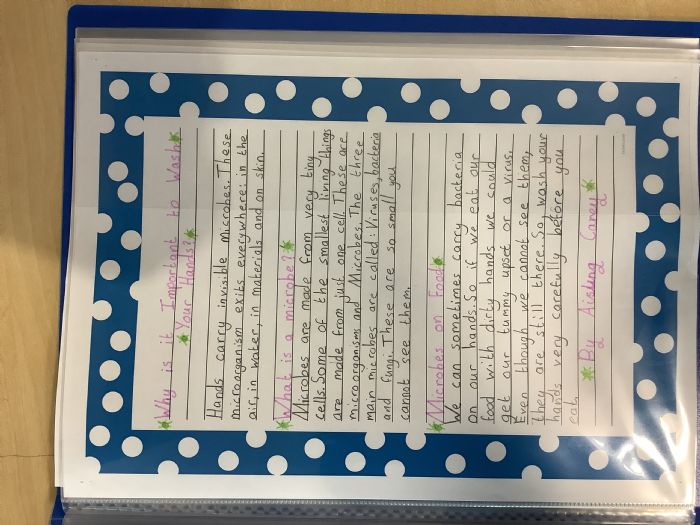 Why is it Important to Wash
Your Hands?
Hands carry invisible microbes. These
microorganism exits everywhere: in the
air, in water, in materials and on skin.
What is a microbe?
Microbes are made from very tiny
cells. Some of the smallest living things
are made from just one cell. These are
microorganisms and Microbes. The three
main microbes are called: Viruses, bacteria
and fungi. These are so small you
cannot see them.
Microbes on Food
We can sometimes carry bacteria
on our hands. So if we eat our
food with dirty hands we could
get our tummy upset or a virus.
Even though we cannot see them,
they are still there. So wash your
hands very carefully before you
eat.
By Aisling Carey